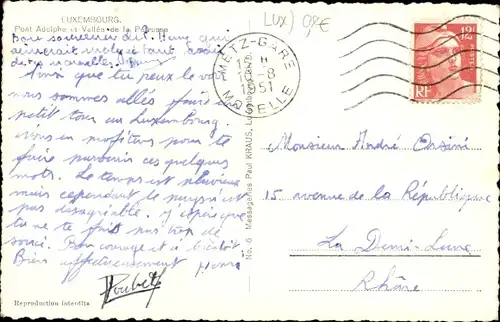 LUXEMBOURG.
Pont Adolphe et Vallée de la Pétrusse
Bon souvenir de
aimerait
de nouvelles
Ainsi que tu peux le voir
nous sommes allés faire un
petit tour au Luxembourg
nous en profitons pour te
faire parvenir ces quelques
mots. Le temps est pluvieux
mais cependant le pays n'est
pas désagréable. J'espère que
tu ne te fais pas trop de
souci. Bon courage et à bientôt
Bien affectueusement
Reproduction interdite
No. 6 Messageries Paul KRAUS, Luxembourg
LUX) 08€
METZ-GARE
8
1951
MOSELLE
12F
POSTES
RF
Monsieur André Orsini
15 avenue de la République
La Demi-Lune
Rhône